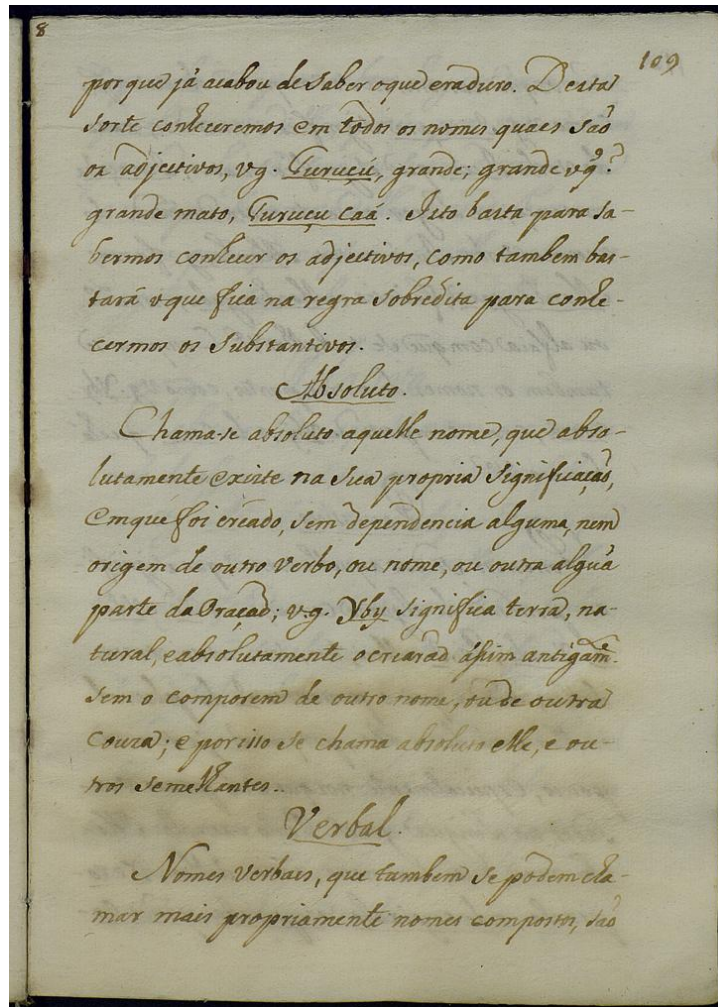 8
109
porque já acabou de saber oque eraduro. Desta
sorte conheceremos em todos os nomes quaes saõ
os adjectivos, vg. Turuçú, grande; grande vg.ª?
grande mato, Turuçu Caá. Isto basta para sa-
bermos conhecer os adjectivos, como tambem bas-
tará oque fica na regra sobredita para conhe-
cermos os substantivos.
Absoluto.
Chama-se absoluto aquelle nome, que abso-
lutamente existe na sua propria significaçaõ,
emque foi creado, sem dependencia alguma, nem
origem de outro verbo, ou nome, ou outra alguã
parte daOraçaõ; v.g. Yby significa terra, na-
tural, eabsolutamente ocriaraõ ássim antigam.te
sem o comporem de outro nome, ou de outra
couza; e porisso se chama absoluto elle, e ou-
tros semelhantes.
Verbal.
Nomes verbaes, que tambem sepodem cha-
mar mais propriamente nomes compostos, saõ